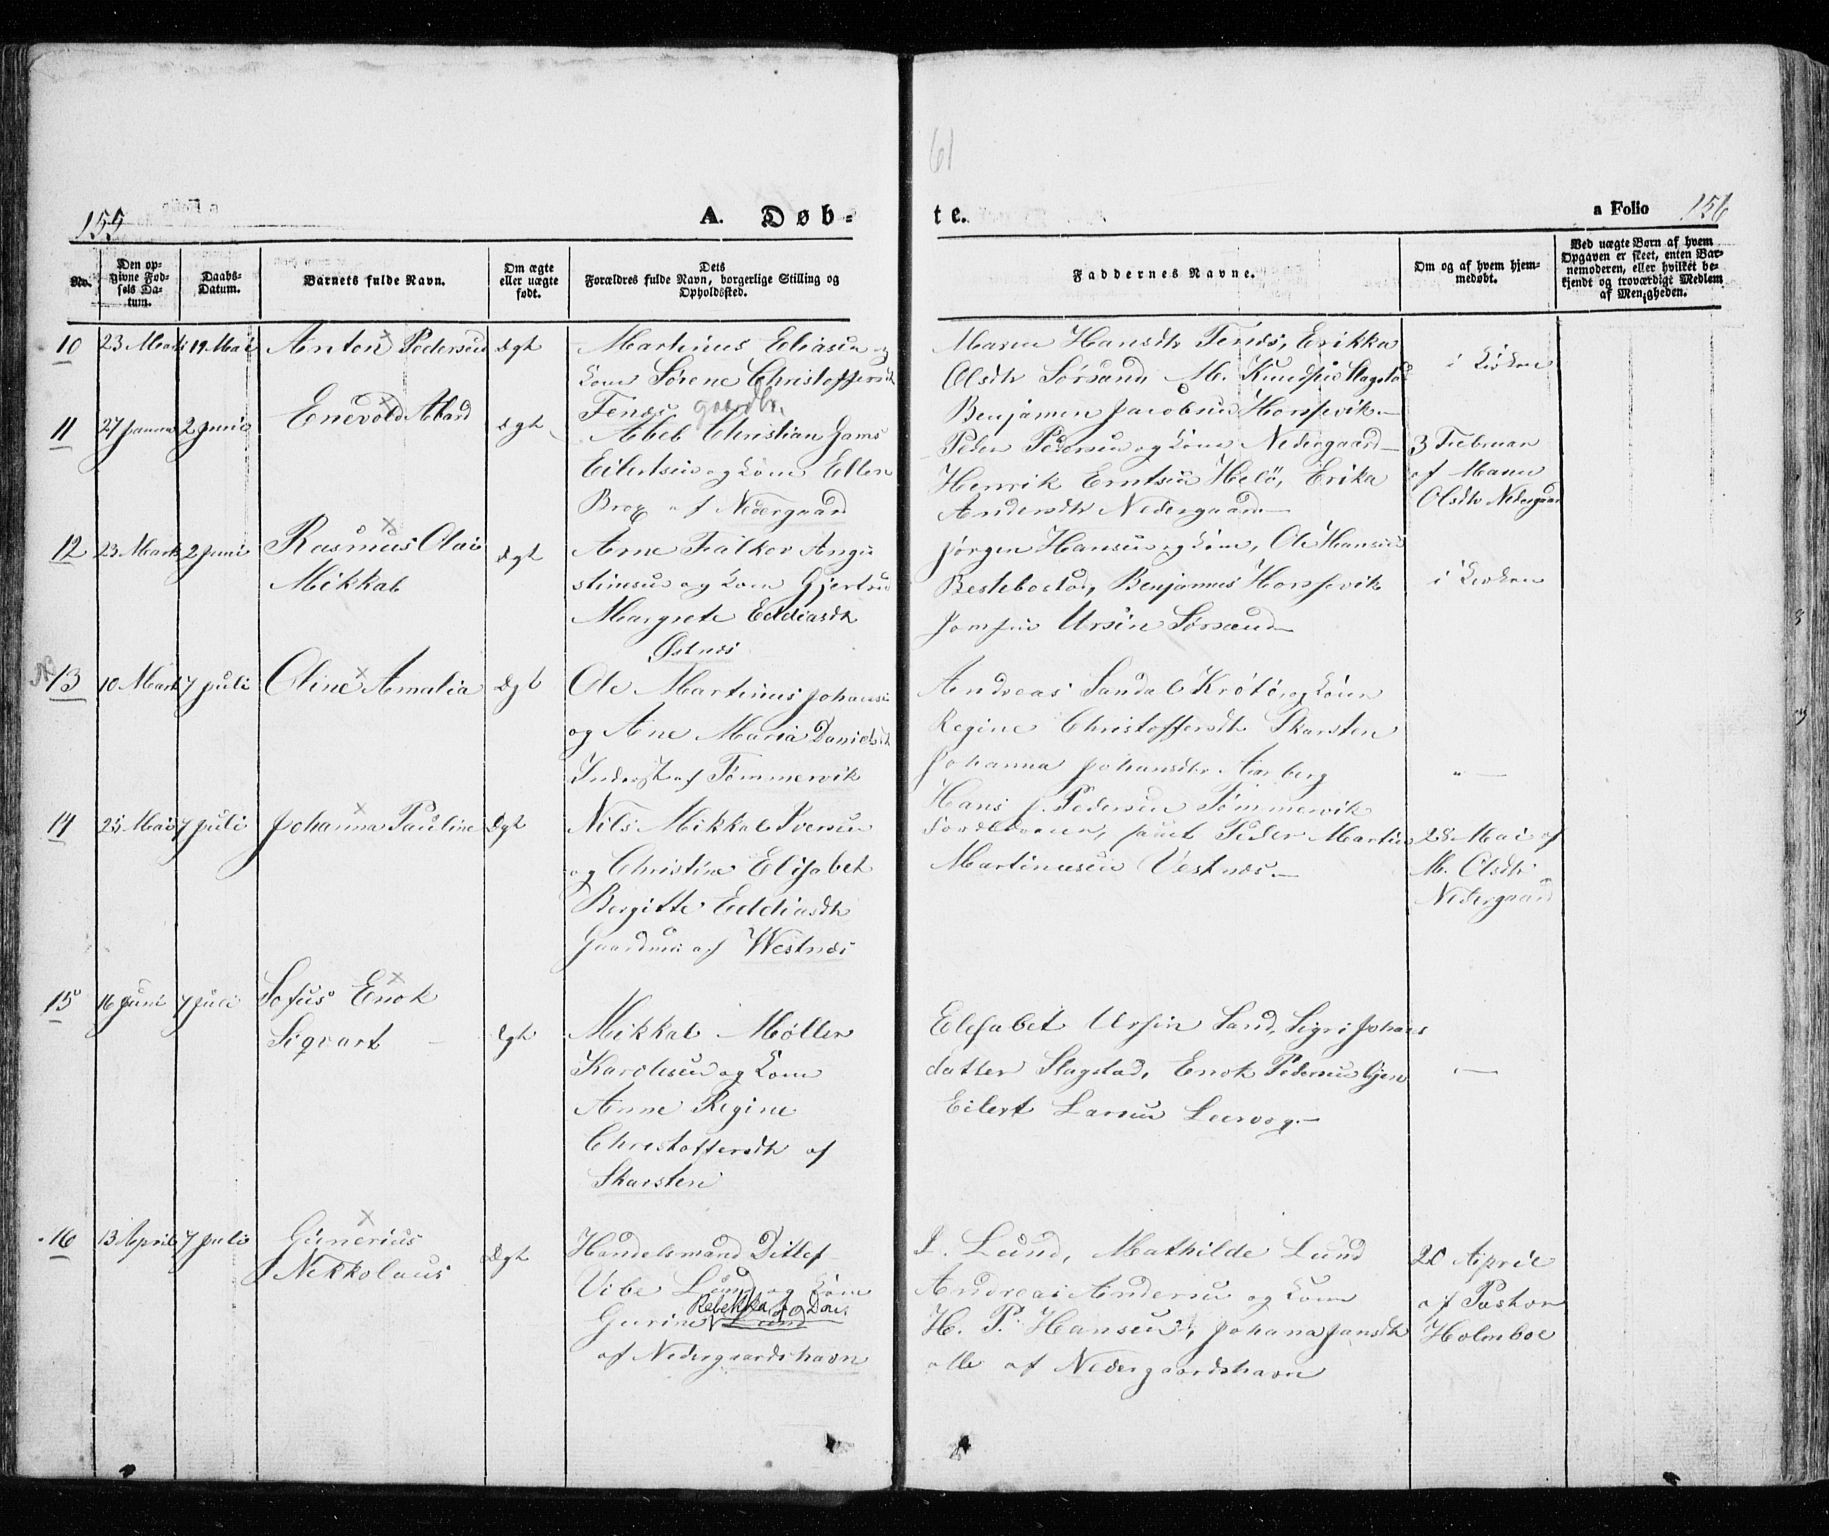 61
155
A. Døb-
te.
a Folio 156
No.
Den op-
givne Fød-
sels Da-
tum.
Daabs-
Datum.
Barnets fulde Navn.
Om ægte
eller uægte
født.
Dets
Forældres fulde Navn, borgerlige Stilling og
Opholdssted.
Faddernes Navne.
Om og af hvem hjem-
medøbt.
Ved uægte Børn af hvem
Opgaven er skeet, enten Bar-
nemoderen, eller hvilket be-
kjendt og troværdigt Medlem
af Menigheden.
10 23 Marts 19 Mai Anton Pedersen Ægt
Martinus Eliasen og
Kone Sørene Christoffersdtr
Fenæs gaardbr.
Maren Hansdtr Fenæs, Erikka
Olsdtr Sørsand, M. Slagstad
Benjamen Jacobsen
i Kirken
11 27 Januar 2 Juni Enevold Abard Ægt
Abel Christian Jams
Eilertsen og Kone Ellen
Brox af Nedergaard
Peder Pedersen og Kone Nedergaard
Henrik Erntsen Helø, Erika
Andersdtr Nedergaard
3 Februar
af Maren
Olsdtr Nedergaard
12 23 Marts 2 Juni Rasmus Olai
Mikkal Ægt
Arne Falkor Angu
stinsen og Kone Gjertrud
Margrete Eddiasdtr
Østnæs
Jørgen Hansen og Kone, Ole Hansen
Bestebostad, Benjamus
Jomfru Ursin Sørsand
i Kirken
13 10 Marts 7 Juli Oline Amalia Ægt
Ole Martinus Johansen
og Ane Maria Danielsdtr
Inderst af Tømmervik
Andreas Sandal Krøtø, og Kone
Regine Christoffersdtr Skarsten
Johanna Johansdtr Aarberg
Hans J. Pedersen Tømmervik
" —
14 25 Mai 7 Juli Johanna Pauline Ægt
Nils Mikkal Iversen
og Christine Elisabet
Bergitte Eddiasdtr
Gaardm af Westnæs
Forældrene, samt Peder Martin
Martinusen Vestnæs.
28 Mai af
M. Olsdtr
Nedergaard
15 16 Juni 7 Juli Sofus Enok
Sigvart Ægt
Mikkal Møller
Karolusen og Kone
Anne Regine
Christoffersdtr af
Skarsten
Elisabet Ursin Sand, Sigri Johans
datter Slagstad, Enok Pedersen
Eilert Larsen
—
16 13 April 7 Juli Gunerius
Nikkolaus Ægt
Handelsmand Ditlef
Vibe Lund og Kone
Rebekka f. Dons
Gurine Lund
af Nedergaardshavn
I. Lund, Mathilde Lund
Andreas Andersen og Kone
H. P. Hansen, Johana Jansdtr
alle af Nedergaardshavn
20 April
af Pastor
Holmboe